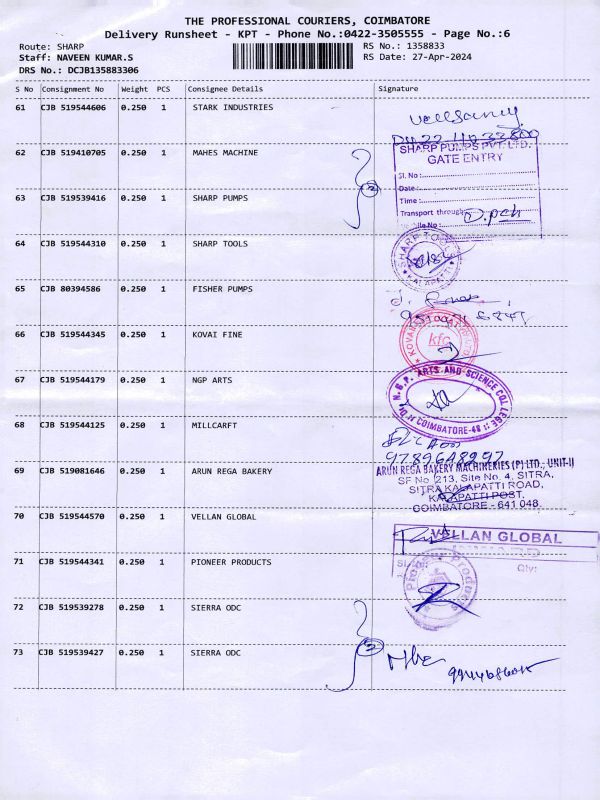 THE PROFESSIONAL COURIERS, COIMBATORE
Delivery Runsheet - KPT - Phone No.:0422-3505555 - Page No.:6
Route: SHARP
RS No.: 1358833
Staff: NAVEEN KUMAR.S
RS Date: 27-Apr-2024
DRS No.: DCJB135883306
S No Consignment No Weight PCS Consignee Details Signature
61 CJB 519544606 0.250 1 STARK INDUSTRIES
62 CJB 519410705 0.250 1 MAHES MACHINE
SHARP PUMPS PVT. LTD.
GATE ENTRY
Sl. No :
Date :
Time :
Transport through
63 CJB 519539416 0.250 1 SHARP PUMPS
2
64 CJB 519544310 0.250 1 SHARP TOOLS
SHARP TOOLS
KALAPATTI
65 CJB 80394586 0.250 1 FISHER PUMPS
66 CJB 519544345 0.250 1 KOVAI FINE
kfc
67 CJB 519544179 0.250 1 NGP ARTS
Dr. N.G.P. ARTS AND SCIENCE COLLEGE
COIMBATORE-48
68 CJB 519544125 0.250 1 MILLCARFT
9789648997
69 CJB 519081646 0.250 1 ARUN REGA BAKERY
ARUN REGA BAKERY MACHINERIES (P) LTD., UNIT-II
SF No 213, Site No. 4, SITRA,
SITRA KALAPATTI ROAD,
KALAPATTI POST,
COIMBATORE - 641 048.
70 CJB 519544570 0.250 1 VELLAN GLOBAL
VELLAN GLOBAL
INWARD
Qty:
71 CJB 519544341 0.250 1 PIONEER PRODUCTS
Pioneer Products
72 CJB 519539278 0.250 1 SIERRA ODC
2
73 CJB 519539427 0.250 1 SIERRA ODC